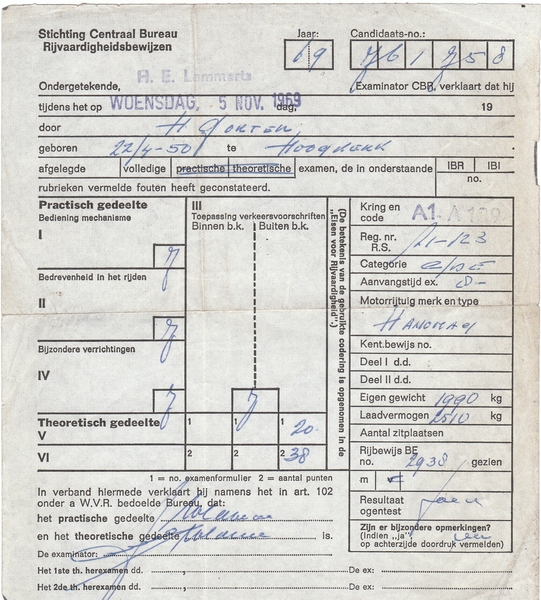 Stichting Centraal Bureau
Rijvaardigheidsbewijzen
Jaar:
69
Candidaats-no.:
H. E. Lammerts
Ondergetekende,
Examinator CBR, verklaart dat hij
tijdens het op WOENSDAG, 5 NOV. 1969 dag, 19
door
geboren 22/4-50 te Hoogkerk
afgelegde volledige practische theoretische examen, de in onderstaande
IBR IBI
no.
rubrieken vermelde fouten heeft geconstateerd.
Practisch gedeelte
Bediening mechanisme
I
Bedrevenheid in het rijden
II
Bijzondere verrichtingen
IV
III
Toepassing verkeersvoorschriften
Binnen b.k. Buiten b.k.
(De betekenis van de gebruikte codering is opgenomen in de
„Eisen voor Rijvaardigheid".)
Theoretisch gedeelte
V 1 1 1 20
VI 2 2 2 38
1 = no. examenformulier 2 = aantal punten
Kring en
code A1
Reg. nr.
R.S. 71-123
Categorie
Aanvangstijd ex. 8-
Motorrijtuig merk en type
Hanomag
Kent.bewijs no.
Deel I d.d.
Deel II d.d.
Eigen gewicht 1990 kg
Laadvermogen 2510 kg
Aantal zitplaatsen
Rijbewijs BE
no. 2938 gezien
m v
Resultaat
ogentest
Zijn er bijzondere opmerkingen?
(Indien „ja",
op achterzijde doordruk vermelden)
In verband hiermede verklaart hij namens het in art. 102
onder a W.V.R. bedoelde Bureau, dat:
het practische gedeelte
en het theoretische gedeelte is.
De examinator:
Het 1ste th. herexamen dd. De ex:
Het 2de th. herexamen dd. De ex: